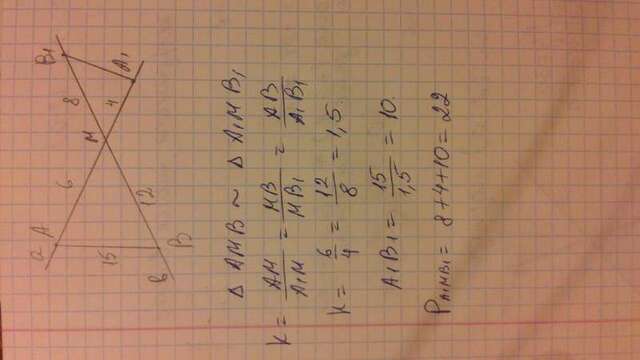 a A 6 M 8 B₁
15 12 4 A₁
b B
Δ AMB ~ Δ A₁MB₁
K = AM/A₁M = MB/MB₁ = AB/A₁B₁
K = 6/4 = 12/8 = 1,5.
A₁B₁ = 15/1,5 = 10.
P A₁MB₁ = 8+4+10 = 22